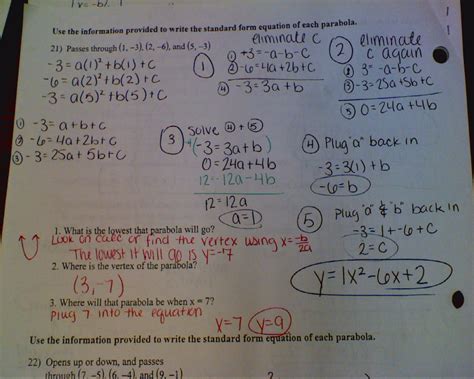 Use the information provided to write the standard form equation of each parabola.
21) Passes through (1, -3), (2, -6), and (5, -3)
-3 = a(1)² + b(1) + c
-6 = a(2)² + b(2) + c
-3 = a(5)² + b(5) + c
① -3 = a + b + c
② -6 = 4a + 2b + c
③ -3 = 25a + 5b + c
① eliminate c
① +3 = -a - b - c
② -6 = 4a + 2b + c
④ -3 = 3a + b
② eliminate c again
① 3 = -a - b - c
③ -3 = 25a + 5b + c
⑤ 0 = 24a + 4b
③ solve ④ + ⑤
(-3 = 3a + b)
0 = 24a + 4b
12 = -12a - 4b
12 = 12a
a = 1
④ Plug "a" back in
-3 = 3(1) + b
-6 = b
⑤ Plug "a" & "b" back in
-3 = 1 + -6 + c
2 = c
y = 1x² - 6x + 2
1. What is the lowest that parabola will go?
Look on calc or find the vertex using x = -b/2a
The lowest it will go is y = -7
2. Where is the vertex of the parabola?
(3, -7)
3. Where will that parabola be when x = 7?
Plug 7 into the equation
x = 7 y = 9
Use the information provided to write the standard form equation of each parabola.
22) Opens up or down, and passes
through (7, -5), (6, -4), and (9, -1)